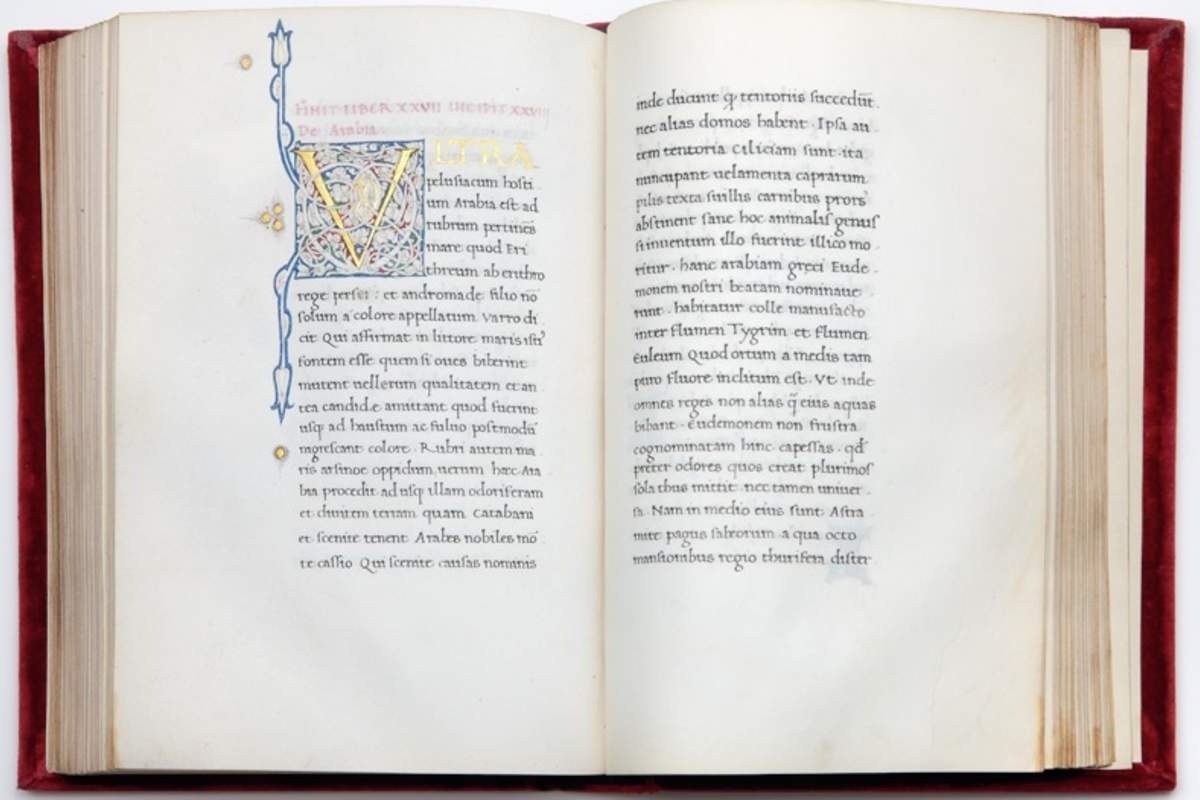 FINIT LIBER XXVII INCIPIT XXVIII
De Arabia
VLTRA
pelusiacum hosti
um Arabia est ad
rubrum pertinēs
mare quod Eri
threum ab erithro
rege persei : et andromade filio nō
solum a colore appellatum varro di
cit Qui affirmat in littore maris isti᾽
fontem esse quem si oues biberint
mutent uellerum qualitatem et an
tea candide amittant quod fuerint
usq; ad haustum ac fuluo postmodū
nigrescant colore . Rubri autem ma
ris arsinoe oppidum uerum hæc Ara
bia procedit ad usq; illam odoriferam
et diuitem terram quam Catabani
et scenite tenent Arabes nobiles mō
te cassio Qui scenite causas nominis
inde ducunt q̃ tentoriis succedūt .
nec alias domos habent . Ipsa au
tem tentoria ciliciam sunt ita
nuncupant uelamenta caprarum
pilis texta suillis carnibus prors᾽
abstinent sane hoc animalis genus
si inuentum illo fuerint illico mo
ritur . hanc arabiam gręci Eude
monem nostri beatam nominaue
runt . habitatur colle manufacto
inter flumen Tygrim et flumen
Euleum Quod ortum a medis tam
puro fluore inclitum est . Vt inde
omnes reges non alias q̃ eius aquas
bibant . eudemonem non frustra
cognominatam hinc capessas . qđ
pręter odores quos creat plurimos
sola thus mittit nec tamen uniuer
sa . Nam in medio eius sunt Astra
mite pagus sabeorum a qua octo
mansionibus regio thurifera dister